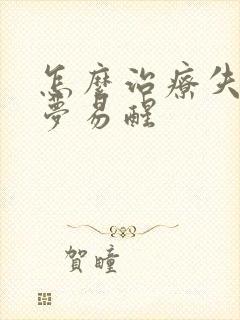 怎麼治療失
夢易醒
賀瞳